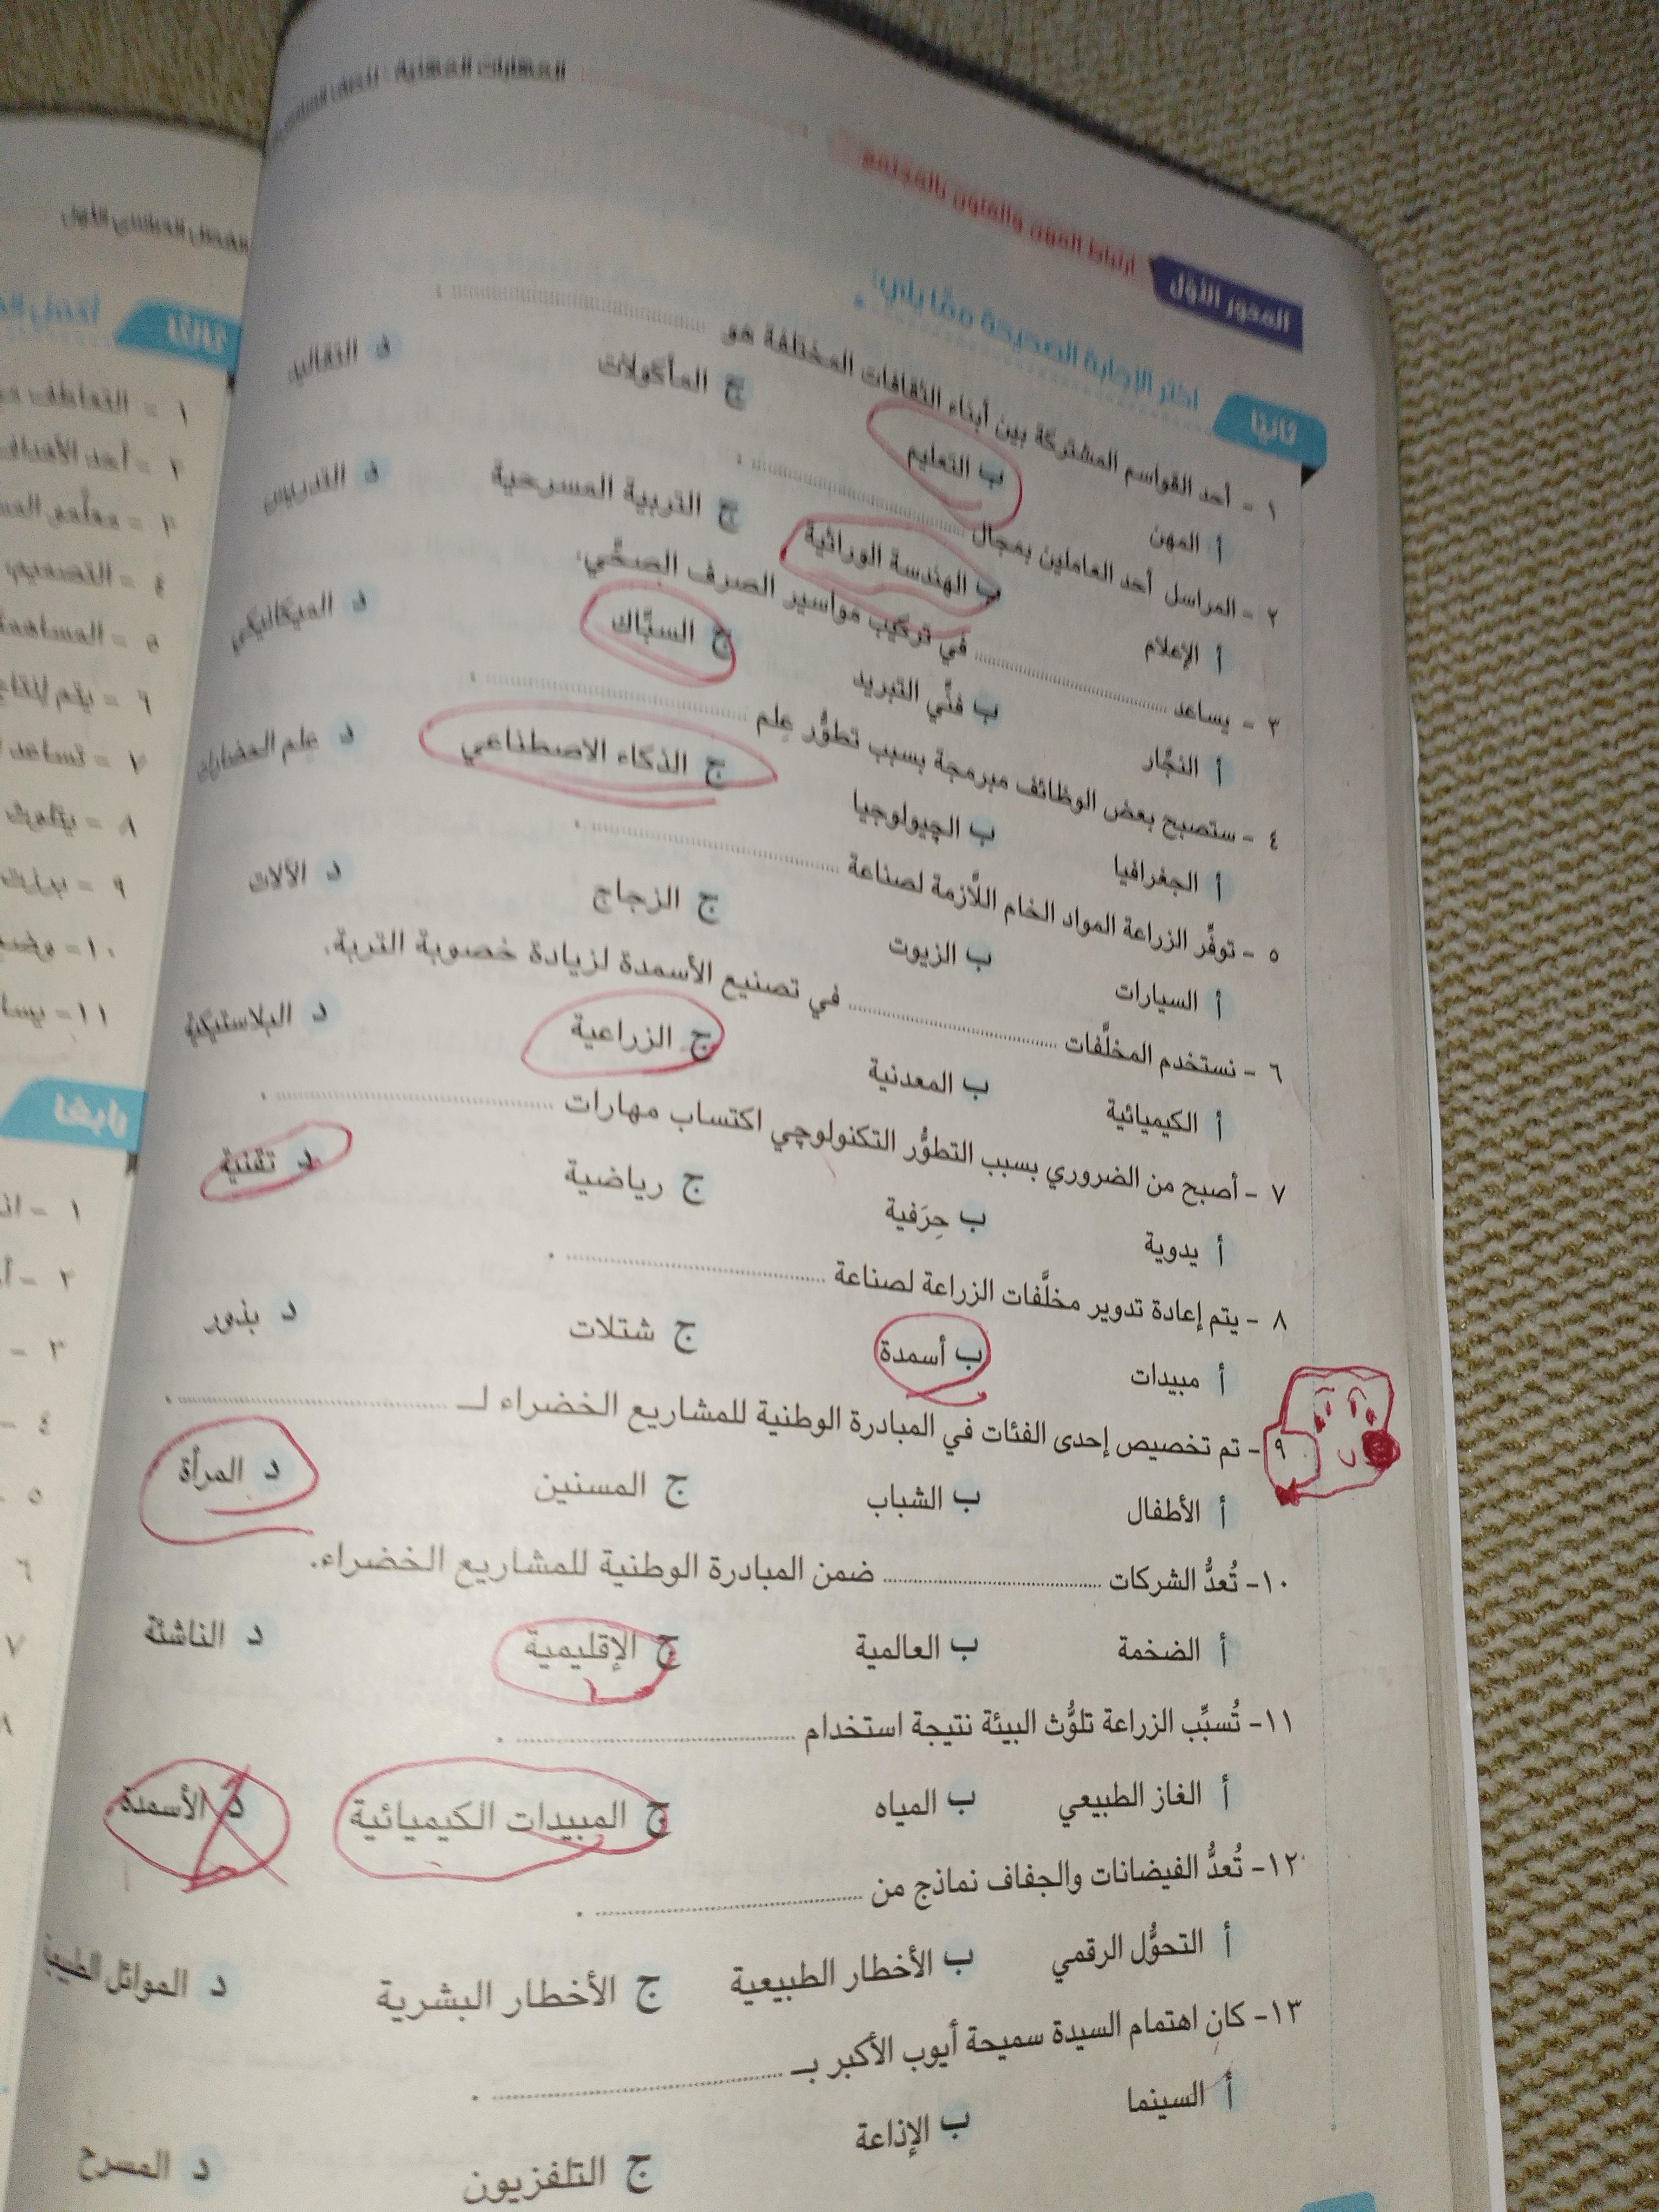 المهارات المهنية - للصف السادس
المحور الأول ارتباط المهن والفنون بالمجتمع
ثانيًا اختر الإجابة الصحيحة ممَّا يأتي:
١ - أحد القواسم المشتركة بين أبناء الثقافات المختلفة هو ........ .
أ المهن ب التعليم ج المأكولات د التقاليد
٢ - المراسل أحد العاملين بمجال ........ .
أ الإعلام ب الهندسة الوراثية ج التربية المسرحية د التدريس
٣ - يساعد ........ في تركيب مواسير الصرف الصحِّي.
أ النجَّار ب فنِّي التبريد ج السبَّاك د الميكانيكي
٤ - ستصبح بعض الوظائف مبرمجة بسبب تطوُّر عِلم ........ .
أ الجغرافيا ب الچيولوجيا ج الذكاء الاصطناعي د علم الحضارات
٥ - توفِّر الزراعة المواد الخام اللَّازمة لصناعة ........ .
أ السيارات ب الزيوت ج الزجاج د الآلات
٦ - نستخدم المخلَّفات ........ في تصنيع الأسمدة لزيادة خصوبة التربة.
أ الكيميائية ب المعدنية ج الزراعية د البلاستيكية
٧ - أصبح من الضروري بسبب التطوُّر التكنولوچي اكتساب مهارات ........ .
أ يدوية ب حِرَفية ج رياضية د تقنية
٨ - يتم إعادة تدوير مخلَّفات الزراعة لصناعة ........ .
أ مبيدات ب أسمدة ج شتلات د بذور
٩ - تم تخصيص إحدى الفئات في المبادرة الوطنية للمشاريع الخضراء لـ ........ .
أ الأطفال ب الشباب ج المسنين د المرأة
١٠- تُعدُّ الشركات ........ ضمن المبادرة الوطنية للمشاريع الخضراء.
أ الضخمة ب العالمية ج الإقليمية د الناشئة
١١- تُسبِّب الزراعة تلوُّث البيئة نتيجة استخدام ........ .
أ الغاز الطبيعي ب المياه ج المبيدات الكيميائية د الأسمدة
١٢- تُعدُّ الفيضانات والجفاف نماذج من ........ .
أ التحوُّل الرقمي ب الأخطار الطبيعية ج الأخطار البشرية د الموائل الطبيعية
١٣- كان اهتمام السيدة سميحة أيوب الأكبر بـ ........ .
أ السينما ب الإذاعة ج التلفزيون د المسرح
ثالثًا
١ - التعاطف
٢ - أحد الأهداف
٤ - التصميم
٥ - المساهمة
٦ - يتم إنتاج
٧ - تساعد
رابعًا